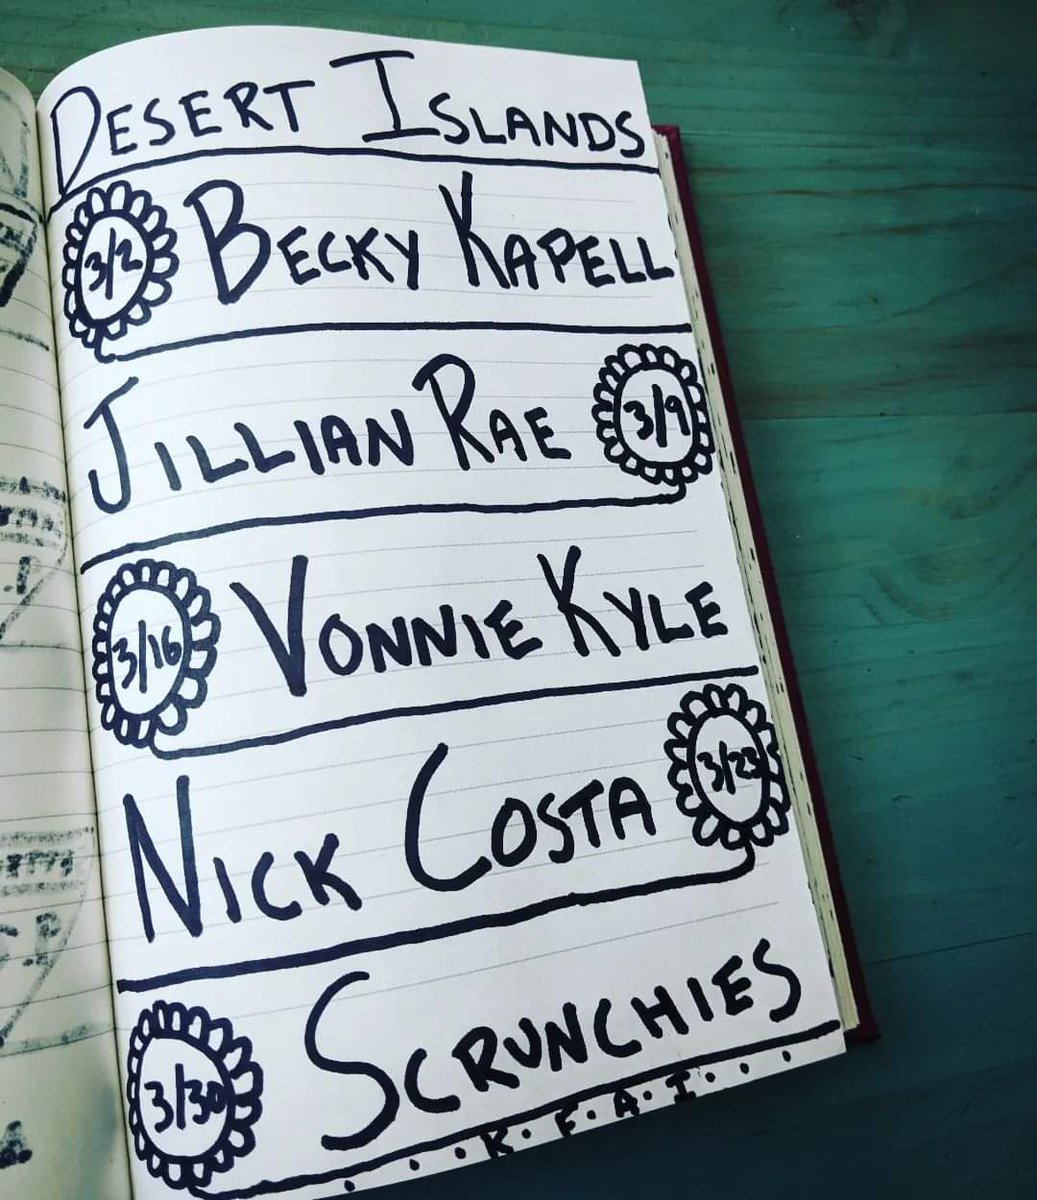 DESERT ISLANDS
3/2 BECKY KAPELL
JILLIAN RAE 3/9
3/16 VONNIE KYLE
NICK COSTA 3/23
3/30 SCRUNCHIES
K.F.A.I.